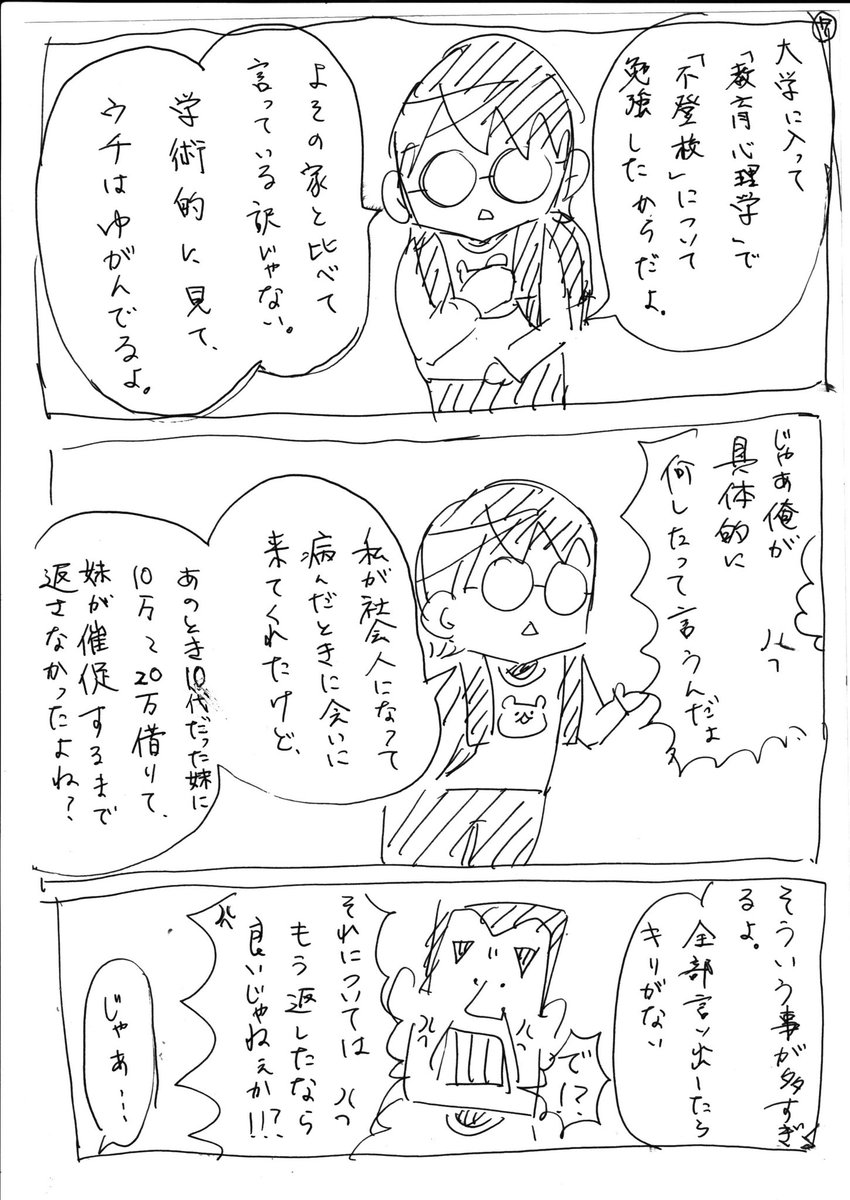 大学に入って
「教育心理学」で
「不登校」について
勉強したからだよ。
よその家と比べて
言っている訳じゃない。
学術的に見て、
ウチはゆがんでるよ。
じゃあ俺が
具体的に
何したって言うんだよ
私が社会人になって
病んだときに会いに
来てくれたけど、
あのとき10代だった妹に
10万〜20万借りて、
妹が催促するまで
返さなかったよね?
そういう事が多すぎ
るよ。
全部言い出したら
キリがない
で!?
それについては
もう返したなら
良いじゃねぇか!!?
じゃあ…